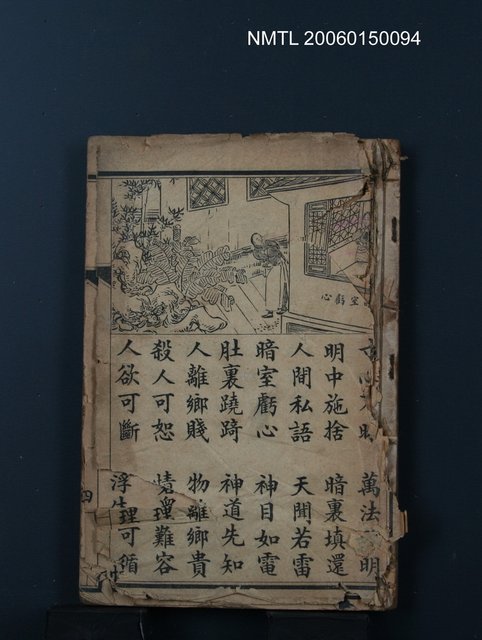 NMTL 20060150094
室虧心
萬法 明
明中施捨 暗裏填還
人間私語 天聞若雷
暗室虧心 神目如電
肚裏蹺蹊 神道先知
人離鄉賤 物離鄉貴
殺人可恕 情理難容
人欲可斷 理可循
四